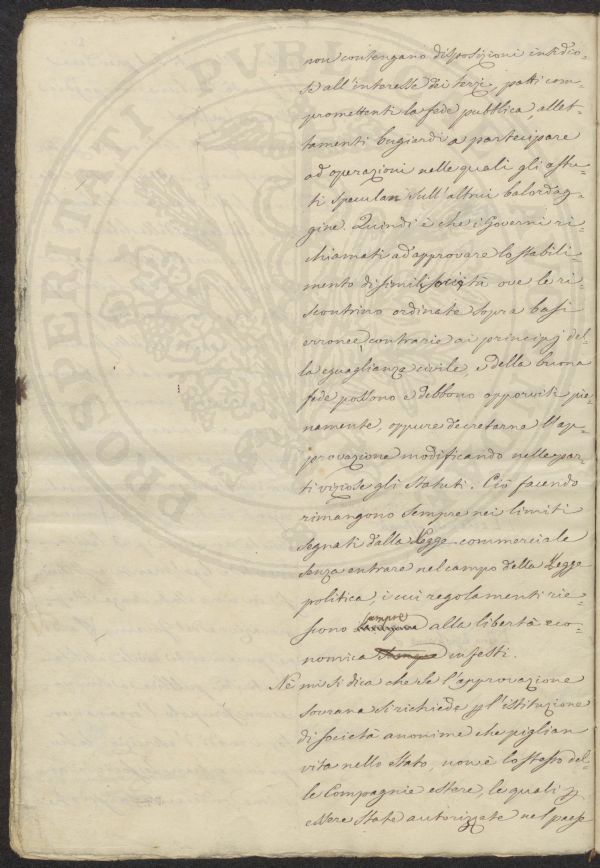 non contengano disposizioni insidio-
se all'interesse dei terzi, patti com-
promettenti la fede pubblica, allet-
tamenti bugiardi a partecipare
ad operazioni nelle quali gli astu-
ti speculan sull'altrui balordag-
gine. Quindi è che i Governi ri-
chiamati ad approvare lo stabili
mento di simili società ove le ri-
scontrino ordinate sopra basi
erronee, contrarie ai principj del-
la eguaglianza civile, e della buona
fede possono e debbono opporviti pie-
namente, oppure decretarne l'ap-
provazione modificando nelle par-
ti viziose gli Statuti. Ciò facendo
rimangono sempre nei limiti
segnati dalla Legge commerciale
senza entrare nel campo della Legge
politica, i cui regolamenti rie-
scono sempre alla libertà eco-
nomica infesti.
Nè mi si dica che se l'approvazione
sovrana si richiede p l'istituzione
di società anonime che piglian
vita nello Stato, non è lo stesso del-
le Compagnie estere, le quali p
essere state autorizzate nel paese
PROSPERITATI PVBLICAE